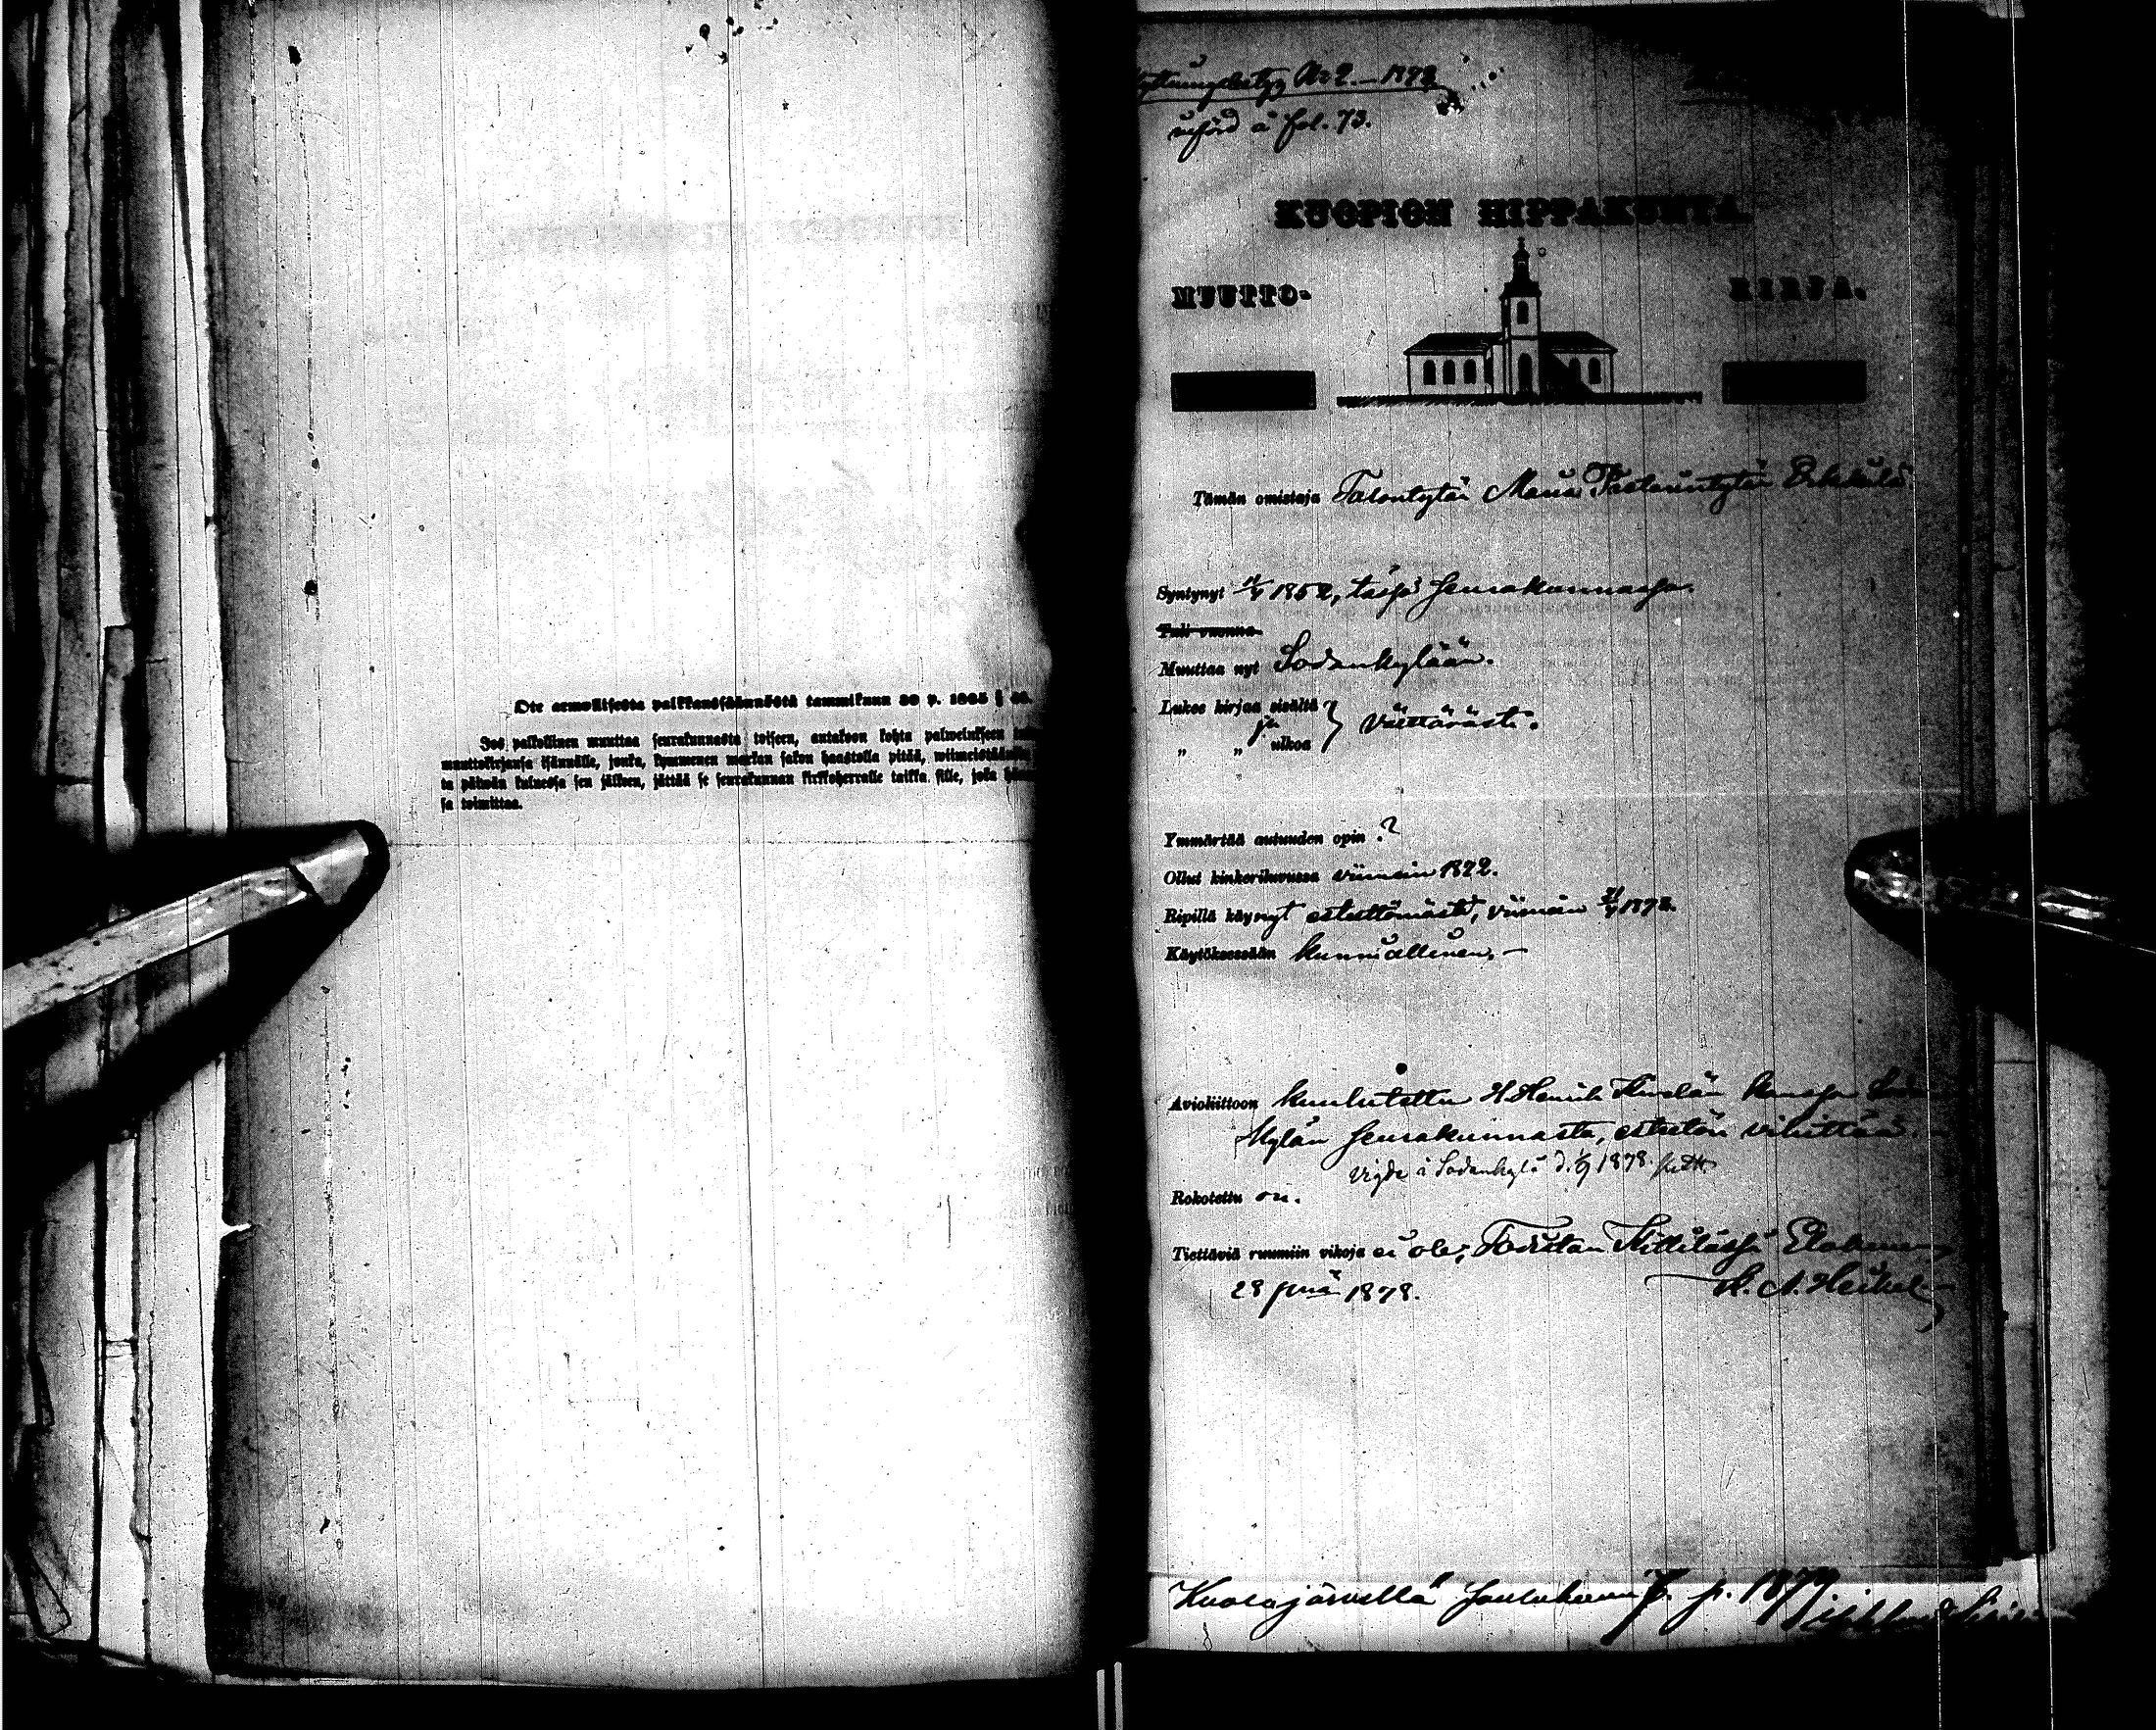 Ote armollisesta palkkaussäännöstä tammikuun 30 p. 1865 §
Jos palkollinen muuttaa seurakunnasta toiseen, antakoon kohta palwelukseen
muuttokirjansa isännälle, jonka, kymmenen markan sakon haastolla pitää, wiimeistäänkin
ta päiwän kuluessa sen jälkeen, jättää se seurakunnan kirkkoherralle taikka sille, joka
sa toimittaa.
1878
införd å fol. 73.
KUOPION HIPPAKUNTA.
MUUTTO- KIRJA.
Tämän omistaja Talontytär Maria
Syntynyt 1852, tässä seurakunnassa.
Tuli vuonna
Muuttaa nyt Sodankylään.
Lukee kirjaa sisältä
ja
„ „ ulkoa } välttävästi.
Ymmärtää autuuden opin ?
Ollut kinkeriluvussa viimein 1872.
Ripillä käynyt esteettömästi, viimein 1878.
Käytöksessään kunniallinen. –
Avioliittoon kuulutettu H. Henrik kanssa
kylän seurakunnasta, esteetön vihittää.
Vigde i Sodankylä d. 1/9 1878.
Rokotettu on.
Tiettäviä ruumiin vikoja ei ole; Todistan Kittilässä Elokuun
28 pnä 1878. K. A. Heikel
Kuolajärvellä Joulukuun 7. p. 1879